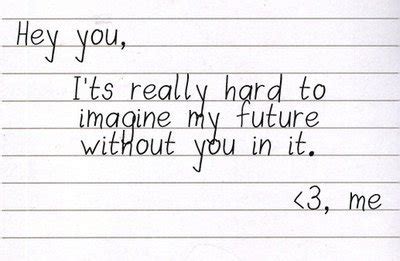 Hey you,
I'ts really hard to
imagine my future
without you in it.
<3, me